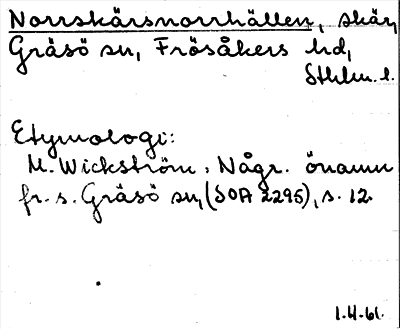 Norrskärsnorrhällen, skär,
Gräsö sn, Frösåkers hd,
Sthlm. l.
Etymologi:
M. Wickström, Någr. önamn
fr. s. Gräsö sn, (SOA 2295), s. 12.
1.4.61.